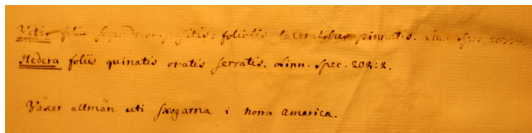 Vitis foliis supradecompositis: foliolis lateralibus pinnatis. Linn. Spec. 203:
Hedera foliis quinatis ovatis serratis. Linn. Spec. 202:2.
Växer altmän uti skogarna i norra america.